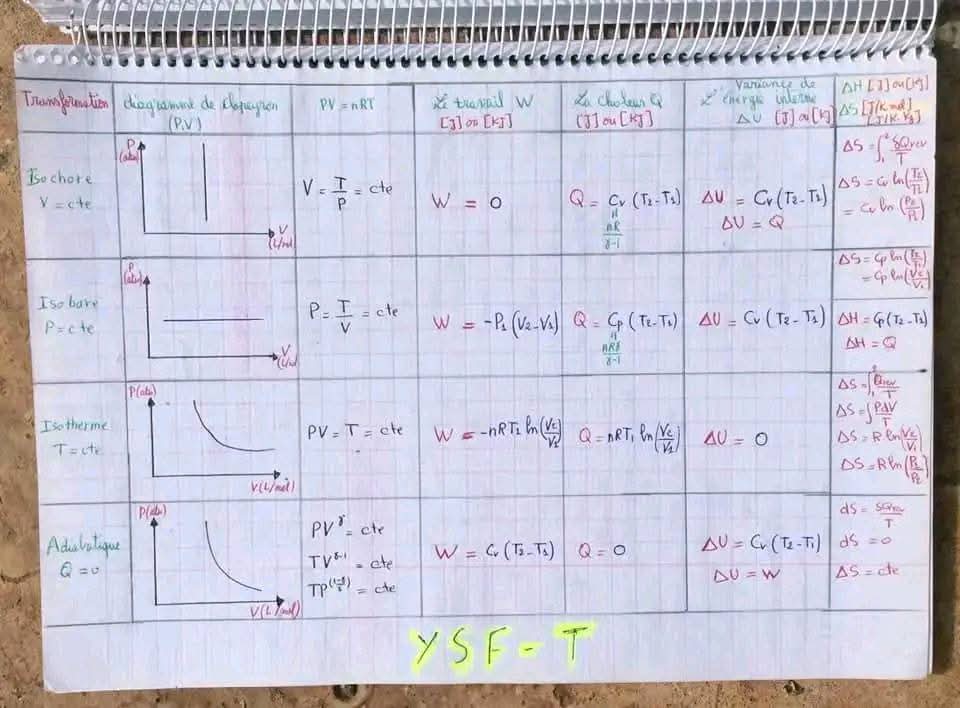 Transformation
diagramme de Clapeyron
(P,V)
PV = nRT
Le travail W
[J] ou [KJ]
La chaleur Q
[J] ou [KJ]
Variance de
L'énergie interne
ΔU [J] ou [KJ]
ΔH [J] ou [KJ]
ΔS [J/K mol]
[J/K.Kg]
Isochore
V = cte
P
(abs)
V
(L/mol)
V = T/P = cte
W = 0
Q = Cv (T2-T1)
nR/γ-1
ΔU = Cv (T2-T1)
ΔU = Q
ΔS = ∫₁² δQrev/T
ΔS = Cv ln(T2/T1)
= Cv ln(P2/P1)
Isobare
P = cte
P
(abs)
V
P = T/V = cte
W = -P1 (V2-V1)
Q = Cp (T2-T1)
nRγ/γ-1
ΔU = Cv (T2-T1)
ΔS = Cp ln(T2/T1)
= Cp ln(V2/V1)
ΔH = Cp (T2-T1)
ΔH = Q
Isotherme
T = cte
P(abs)
V(L/mol)
PV = T = cte
W = -nRT1 ln(V2/V1)
Q = nRT1 ln(V2/V1)
ΔU = 0
ΔS = ∫₁² Qrev/T
ΔS = ∫ PdV/T
ΔS = R ln(V2/V1)
ΔS = R ln(P1/P2)
Adiabatique
Q = 0
P(abs)
V(L/mol)
PV^γ = cte
TV^γ-1 = cte
TP^(1-γ/γ) = cte
W = Cv (T2-T1)
Q = 0
ΔU = Cv (T2-T1)
ΔU = W
dS = δQrev/T
dS = 0
ΔS = cte
YSF-T